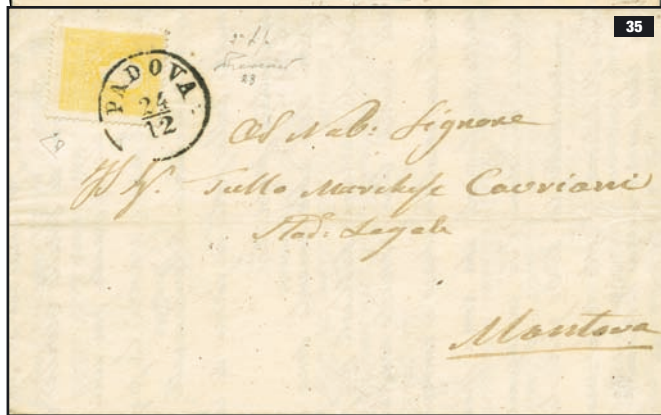 35
PADOVA
24
12
Al Nob: Signore
Tullo Marchese Cavriani
Stud: Legale
Mantova